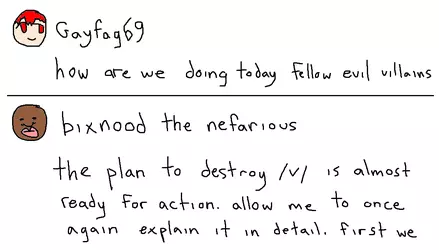 Gayfag69
how are we doing today fellow evil villains
bixnood the nefarious
the plan to destroy /v/ is almost
ready for action. allow me to once
again explain it in detail. first we